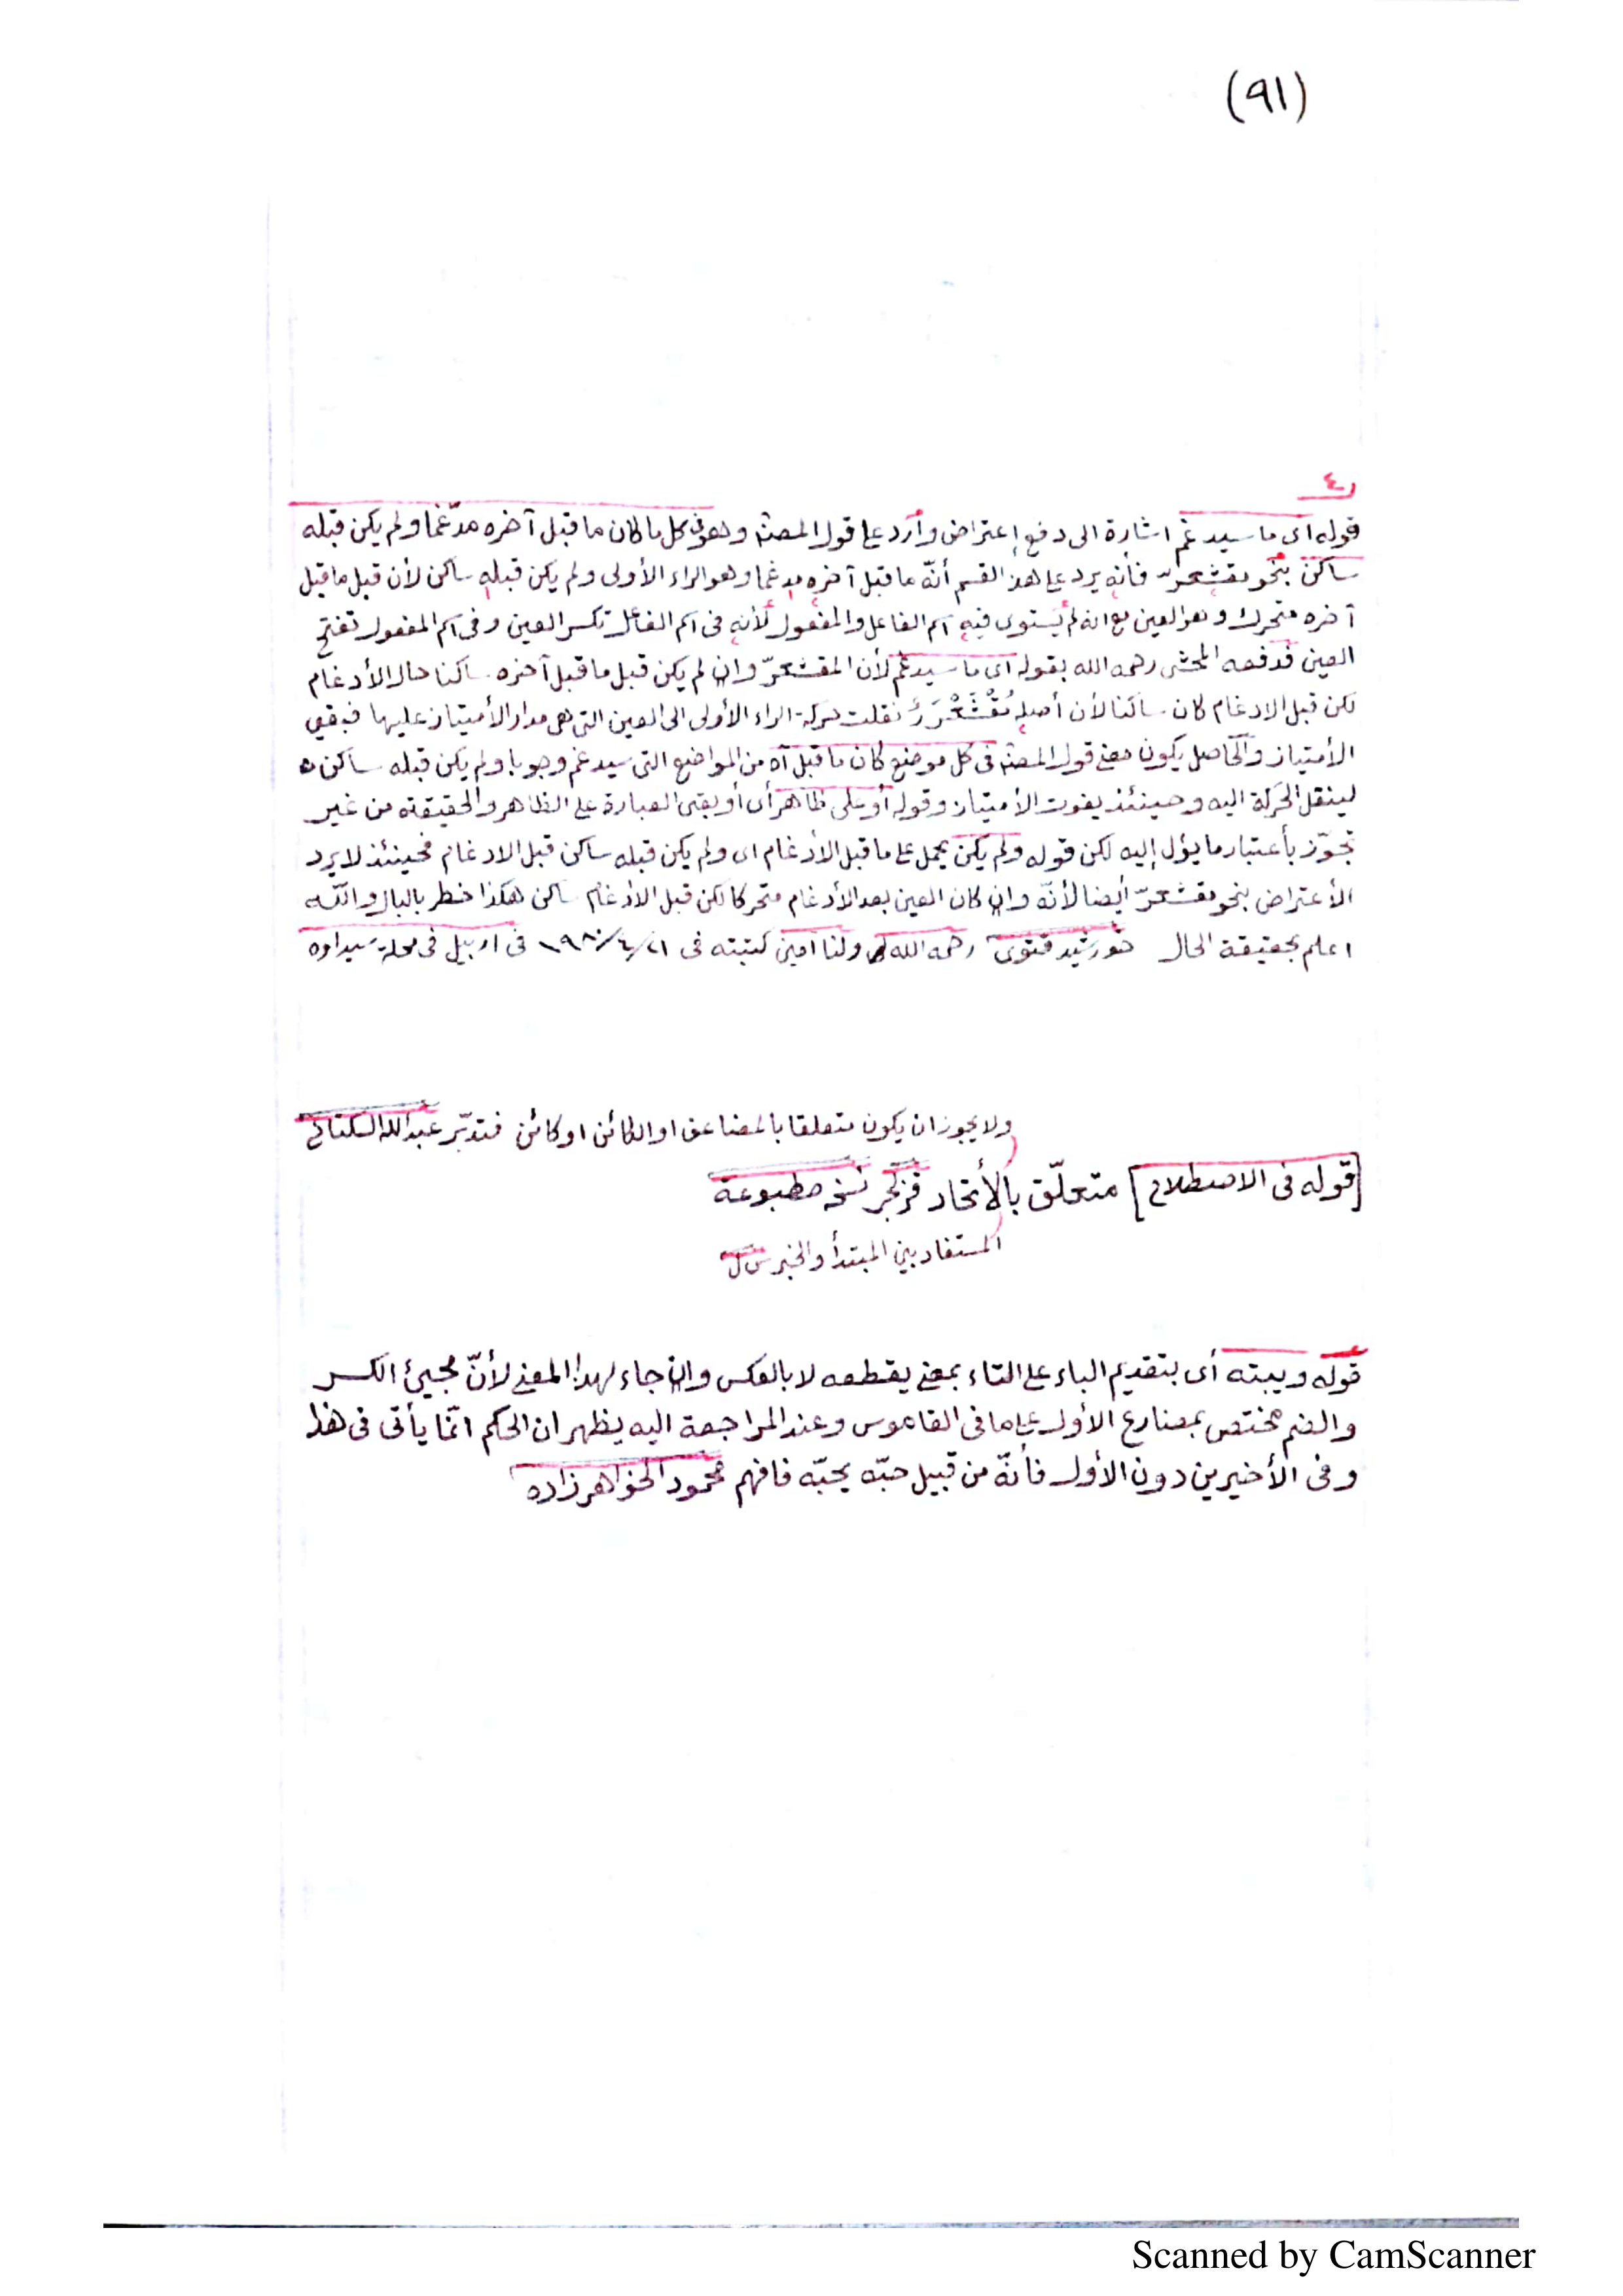 (٩١)
٤
قوله اى ما سيدغم اشارة الى دفع إعتراض وأرد على قول المصنف وهو فى كل ما كان ما قبل آخره مدّغما ولم يكن قبله
ساكن بنحو مقشعرّ فأنه يرد على هذ القسم أنّه ما قبل آخره مدغما وهو الراء الأولى ولم يكن قبله ساكن لأن قبل ما قبل
آخره متحرك وهو العين مع انه لم يستوى فيه اسم الفاعل والمفعول لأنه فى اسم الفاعل تكسر العين وفى اسم المفعول تفتح
العين فدفعه المحشى رحمه الله بقوله اى ما سيدغم لأن المقشعرّ وان لم يكن قبل ما قبل آخره ساكنا حال الأدغام
لكن قبل الادغام كان ساكنا لأن أصله مُقْشَعْرَرٌ نقلت حركة الراء الأولى الى العين التى هى مدار الأمتياز عليها فبقى
الأمتياز والحاصل يكون معنى قول المصنف فى كل موضع كان ما قبل آه من المواضع التى سيدغم وجوبا ولم يكن قبله ساكن ه
لينقل الحركة اليه وحينئذ يفوت الأمتياز وقوله أو على ظاهر أى أو بقى العبارة على الظاهر والحقيقته من غير
تجوّز بأعتبار ما يؤل إليه لكن قوله ولم يكن يحمل على ما قبل الأدغام اى ولم يكن قبله ساكن قبل الادغام فحينئذ لا يرد
الأعتراض بنحو مقشعرّ أيضا لأنّه وان كان العين بعد الأدغام متحركا لكن قبل الأدغام ساكن هكذا خطر بالبال والله
اعلم بحقيقة الحال خورشيد فتوى رحمه الله ولنا امين كتبته فى ٢١/٤/١٩٨٠ فى اربيل فى محلة سيداوه
ولا يجوز ان يكون متعلقا بالمضاعف او الكائن او كائن فتدبّر عبدالله
[قوله فى الاصطلاح] متعلّق بالأتحاد قزلجى نسخه مطبوعة
المستفاد بين المبتدأ والخبر
قوله ويبته أى بتقديم الباء على التاء بمعنى يقطعه لا بالعكس وان جاء لهذا المعنى لأنّ مجيئ الكسر
والضم مختص بمضارع الأول على ما فى القاموس وعند المراجعة اليه يظهر ان الحكم انّما يأتى فى هذا
وفى الأخيرين دون الأول فأنّه من قبيل حبّه يحبّه فافهم محمود الخواهرزاده
Scanned by CamScanner